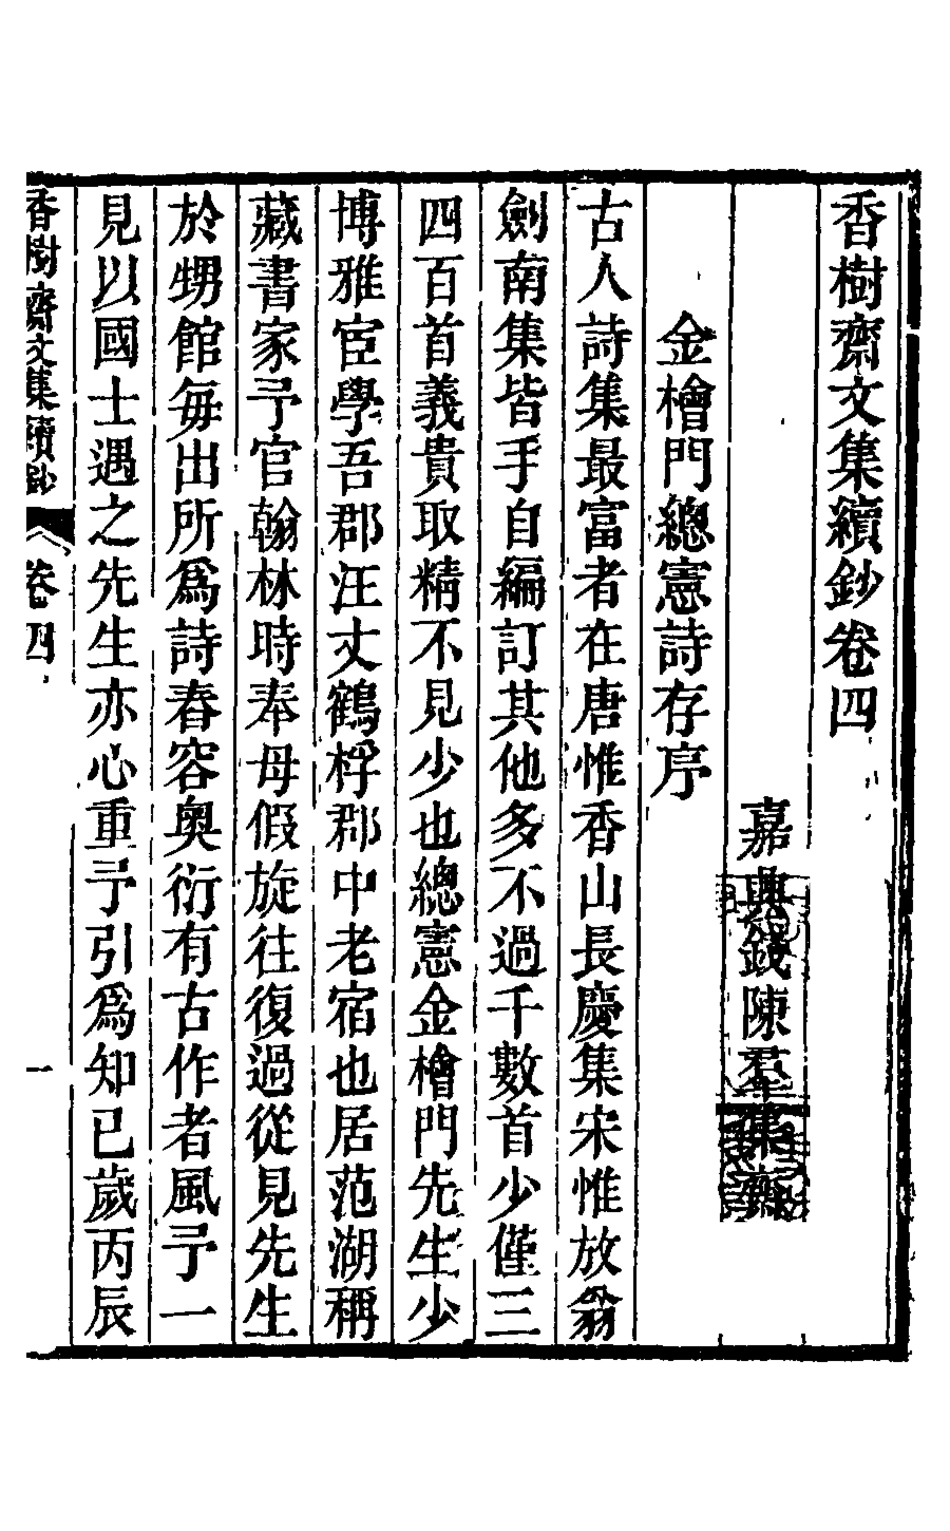 香樹齋文集續鈔卷四
嘉興錢陳羣集齋
金檜門總憲詩存序
古人詩集最富者在唐惟香山長慶集宋惟放翁
劍南集皆手自編訂其他多不過千數首少僅三
四百首義貴取精不見少也總憲金檜門先生少
博雅宦學吾郡汪丈鶴桴郡中老宿也居范湖稱
藏書家予官翰林時奉母假旋往復過從見先生
於甥館每出所爲詩舂容奧衍有古作者風予一
見以國士遇之先生亦心重予引爲知已歲丙辰
香樹齋文集續鈔 卷四 一